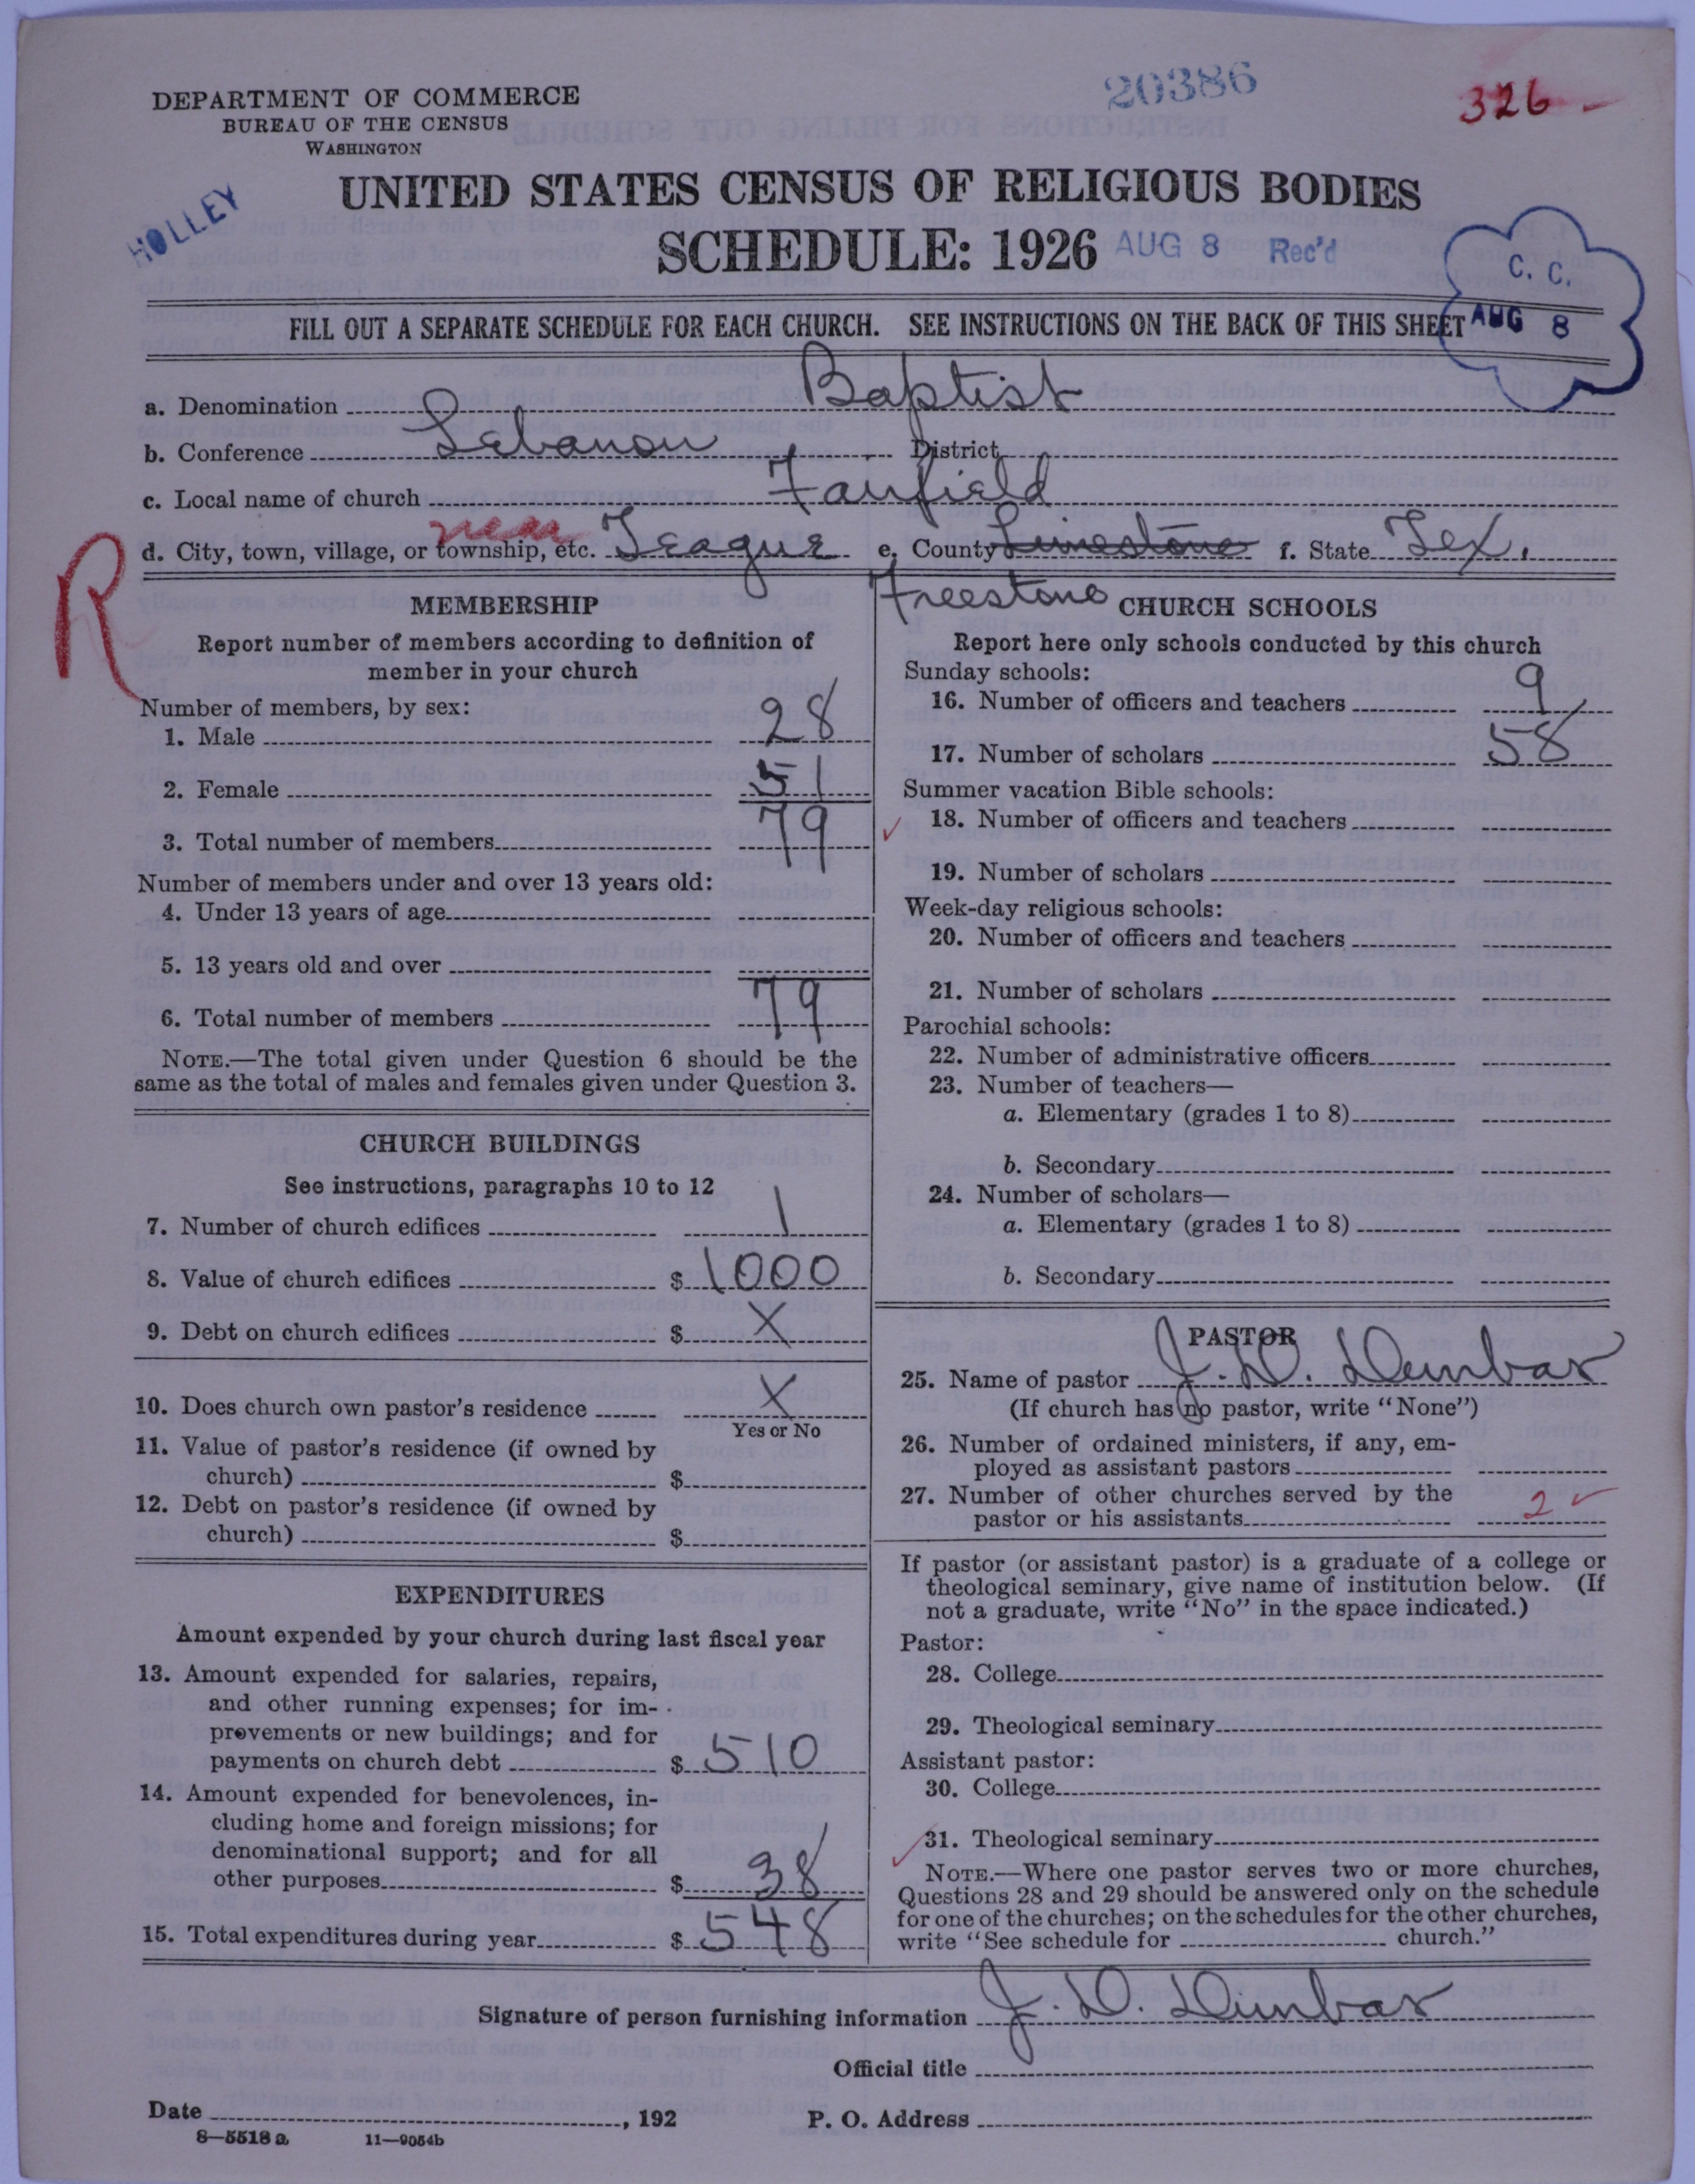 20386
326
DEPARTMENT OF COMMERCE
BUREAU OF THE CENSUS
WASHINGTON
HOLLEY
UNITED STATES CENSUS OF RELIGIOUS BODIES
SCHEDULE: 1926 AUG 8 Rec'd
C. C.
AUG 8
FILL OUT A SEPARATE SCHEDULE FOR EACH CHURCH. SEE INSTRUCTIONS ON THE BACK OF THIS SHEET
a. Denomination Baptist
b. Conference Lebanon District
c. Local name of church Fairfield
near
d. City, town, village, or township, etc. Teague e. County Limestone f. State Tex.
Freestone
R
MEMBERSHIP
Report number of members according to definition of
member in your church
Number of members, by sex:
1. Male 28
2. Female 51
3. Total number of members 79
Number of members under and over 13 years old:
4. Under 13 years of age
5. 13 years old and over
6. Total number of members 79
NOTE.—The total given under Question 6 should be the
same as the total of males and females given under Question 3.
CHURCH BUILDINGS
See instructions, paragraphs 10 to 12
7. Number of church edifices 1
8. Value of church edifices $ 1000
9. Debt on church edifices $ X
10. Does church own pastor's residence X
Yes or No
11. Value of pastor's residence (if owned by
church) $
12. Debt on pastor's residence (if owned by
church) $
EXPENDITURES
Amount expended by your church during last fiscal year
13. Amount expended for salaries, repairs,
and other running expenses; for im-
provements or new buildings; and for
payments on church debt $ 510
14. Amount expended for benevolences, in-
cluding home and foreign missions; for
denominational support; and for all
other purposes $ 38
15. Total expenditures during year $ 548
CHURCH SCHOOLS
Report here only schools conducted by this church
Sunday schools:
16. Number of officers and teachers 9
17. Number of scholars 58
Summer vacation Bible schools:
18. Number of officers and teachers
19. Number of scholars
Week-day religious schools:
20. Number of officers and teachers
21. Number of scholars
Parochial schools:
22. Number of administrative officers
23. Number of teachers—
a. Elementary (grades 1 to 8)
b. Secondary
24. Number of scholars—
a. Elementary (grades 1 to 8)
b. Secondary
PASTOR
25. Name of pastor J. D. Dunbar
(If church has no pastor, write "None")
26. Number of ordained ministers, if any, em-
ployed as assistant pastors
27. Number of other churches served by the
pastor or his assistants 2
If pastor (or assistant pastor) is a graduate of a college or
theological seminary, give name of institution below. (If
not a graduate, write "No" in the space indicated.)
Pastor:
28. College
29. Theological seminary
Assistant pastor:
30. College
31. Theological seminary
NOTE.—Where one pastor serves two or more churches,
Questions 28 and 29 should be answered only on the schedule
for one of the churches; on the schedules for the other churches,
write "See schedule for church."
Signature of person furnishing information J. D. Dunbar
Official title
Date , 192 P. O. Address
8—5518 a 11—9054b